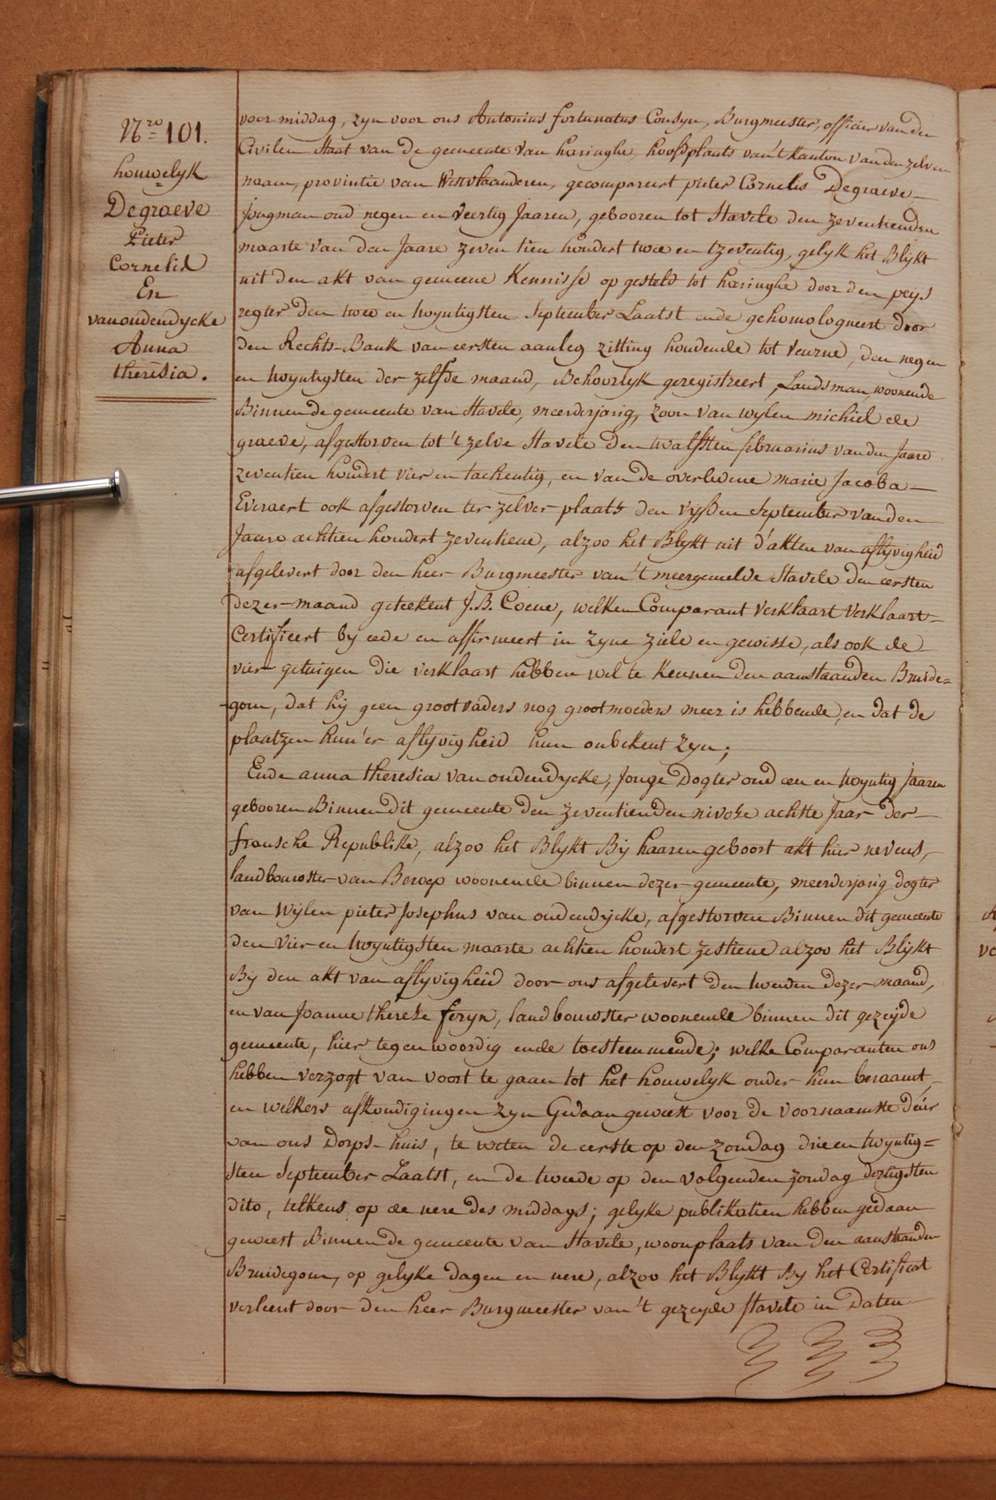 Nro 101.
houwelyk
Degraeve
Pieter
Cornelis
En
vanoudendycke
Anna
theresia.
voor middag, zyn voor ons Antonius fortunatus Cousyn, Burgmeester, officier van den
Civilen Staat van de gemeente van haringhe, hoofdplaats van't kanton van den zelven
naam, provintie van Westvlaanderen, gecompareert pieter Cornelis Degraeve
jongman oud negen en veertig Jaaren, gebooren tot Stavele den zeventienden
maarte van den Jaare zeven tien hondert twee en tzeventig, gelyk het Blykt
uit den akt van gemeene Kennisse op gesteld tot haringhe door den peys
regter den twee en twyntigsten September Laatst ende gehomologueert door
den Rechts-Bank van eersten aanleg zitting houdende tot veurne, den negen
en twyntigsten der zelfde maand, Behoorlyk geregistreert, Landsman, woonende
Binnen de gemeente van Stavele, meerderjarig, zoon van wylen michiel de
graeve, afgestorven tot 't zelve Stavele den twalfsten februarius van den Jaare
zeventien hondert vier en tachentig, en van de overledene marie Jacoba
Everaert ook afgestorven ter zelver plaats den vyfden September van den
Jaare achtien hondert zeventiene, alzoo het Blykt uit d'akten van aflyvigheid
afgelevert door den heer Burgmeester van 't meergemelde Stavele den eersten
dezer maand geteekent J.B. Coene, welken Comparant verklaart verklaart
Certifieert by eede en affirmeert in zyne ziele en gewisse, als ook de
vier getuigen die verklaart hebben wel te kennen den aanstaanden Bruide=
gom, dat hij geen grootvaders nog grootmoeders meer is hebbende, en dat de
plaatzen hun'er aflyvigheid hun onbekent zyn;
Ende anna theresia van oudendycke, Jonge Dogter oud een en twyntig Jaaren
gebooren Binnen dit gemeente den zeventienden nivose achtste Jaar der
fransche Republike, alzoo het Blykt By haaren geboort akt hier nevens,
landbouwster van Beroep woonende binnen dezer gemeente, meerderjarig dogter
van Wylen pieter Josephus van oudendycke, afgestorven Binnen dit gemeente
den vier en twyntigsten maarte achtien hondert zestiene alzoo het Blykt
By den akt van aflyvigheid door ons afgelevert den tweeden dezer maand,
en van Joanne therese feryn, landbouwster woonende binnen dit gezeyde
gemeente, hier tegenwoordig ende toesteemende; welke Comparanten ons
hebben verzogt van voort te gaan tot het houwelyk onder hun beraamt,
en welkers afkondigingen zyn Gedaan geweest voor de voornaamste deur
van ons Dorps-huis, te weten de eerste op den zondag drie en twyntig=
sten September Laatst, en de tweede op den volgenden zondag dertigsten
dito, telkens op de uere des middags; gelyke publikatien hebben gedaan
geweest Binnen de gemeente van Stavele, woonplaats van den aanstaanden
Bruidegom, op gelyke dagen en uere, alzoo het Blykt By het Certificat
verleent door den heer Burgmeester van 't gezeyde Stavele in Daten